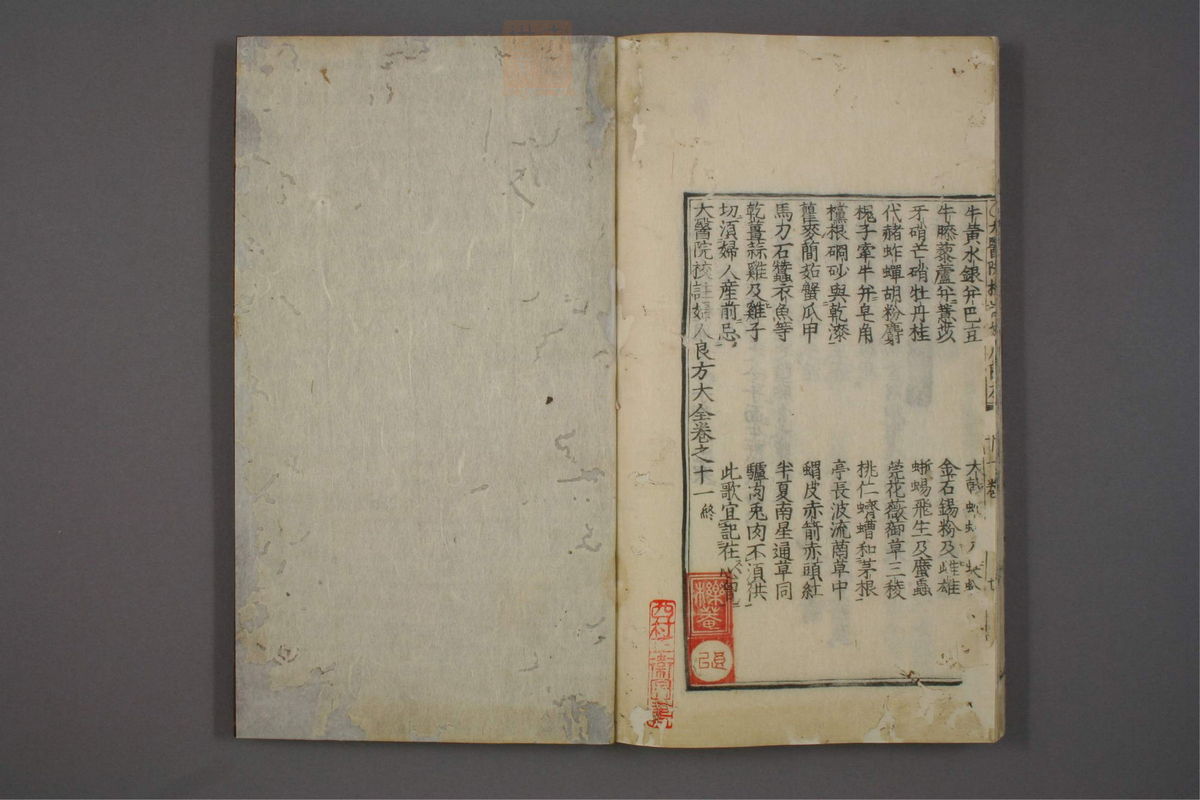 牛黄水銀并巴豆 大戟
牛膝藜蘆并薏苡 金石錫粉及雌雄
牙硝芒硝牡丹桂 蜥蜴飛生及䗪蟲
代赭蚱蟬胡粉麝 莞花薇御草三稜
槐子牽牛并皂角 桃仁蠐螬和茅根
欓根硇砂與乾漆 亭長波流茵草中
瞿麥䕡茹蟹瓜甲 蝟皮赤箭赤頭紅
馬刀石蠶衣魚等 半夏南星通草同
乾薑蒜雞及雞子 驢肉兎肉不湏供
切湏婦人産前忌 此歌宜記在心胷
大醫院校註婦人良方大全卷之十一終
櫟菴